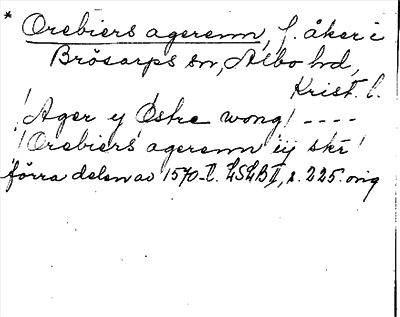 * Orebiers agerenn, f. åker i
Brösarps sn, Albo hd,
Krist. l.
"Ager y Østre wong" ----
"Orebiers agerenn iij skr"
förra delen av 1570-t. LSLB II, s. 225. orig